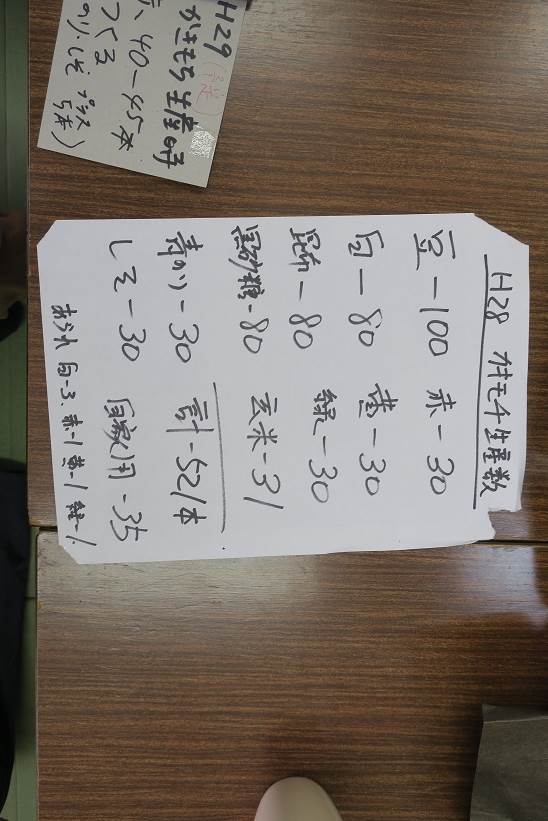 H28 カキモチ生産数
豆-100 赤-30
白-80 黄-30
昆布-80 緑-30
黒砂糖-80 玄米-31
青のり-30 計-521本
しそ-30 自家用-35
あられ 白-3. 赤-1 黄-1 緑-1.
H29
かきもち生産時
40-45本
つくる
のり、しそ プラス
5本)